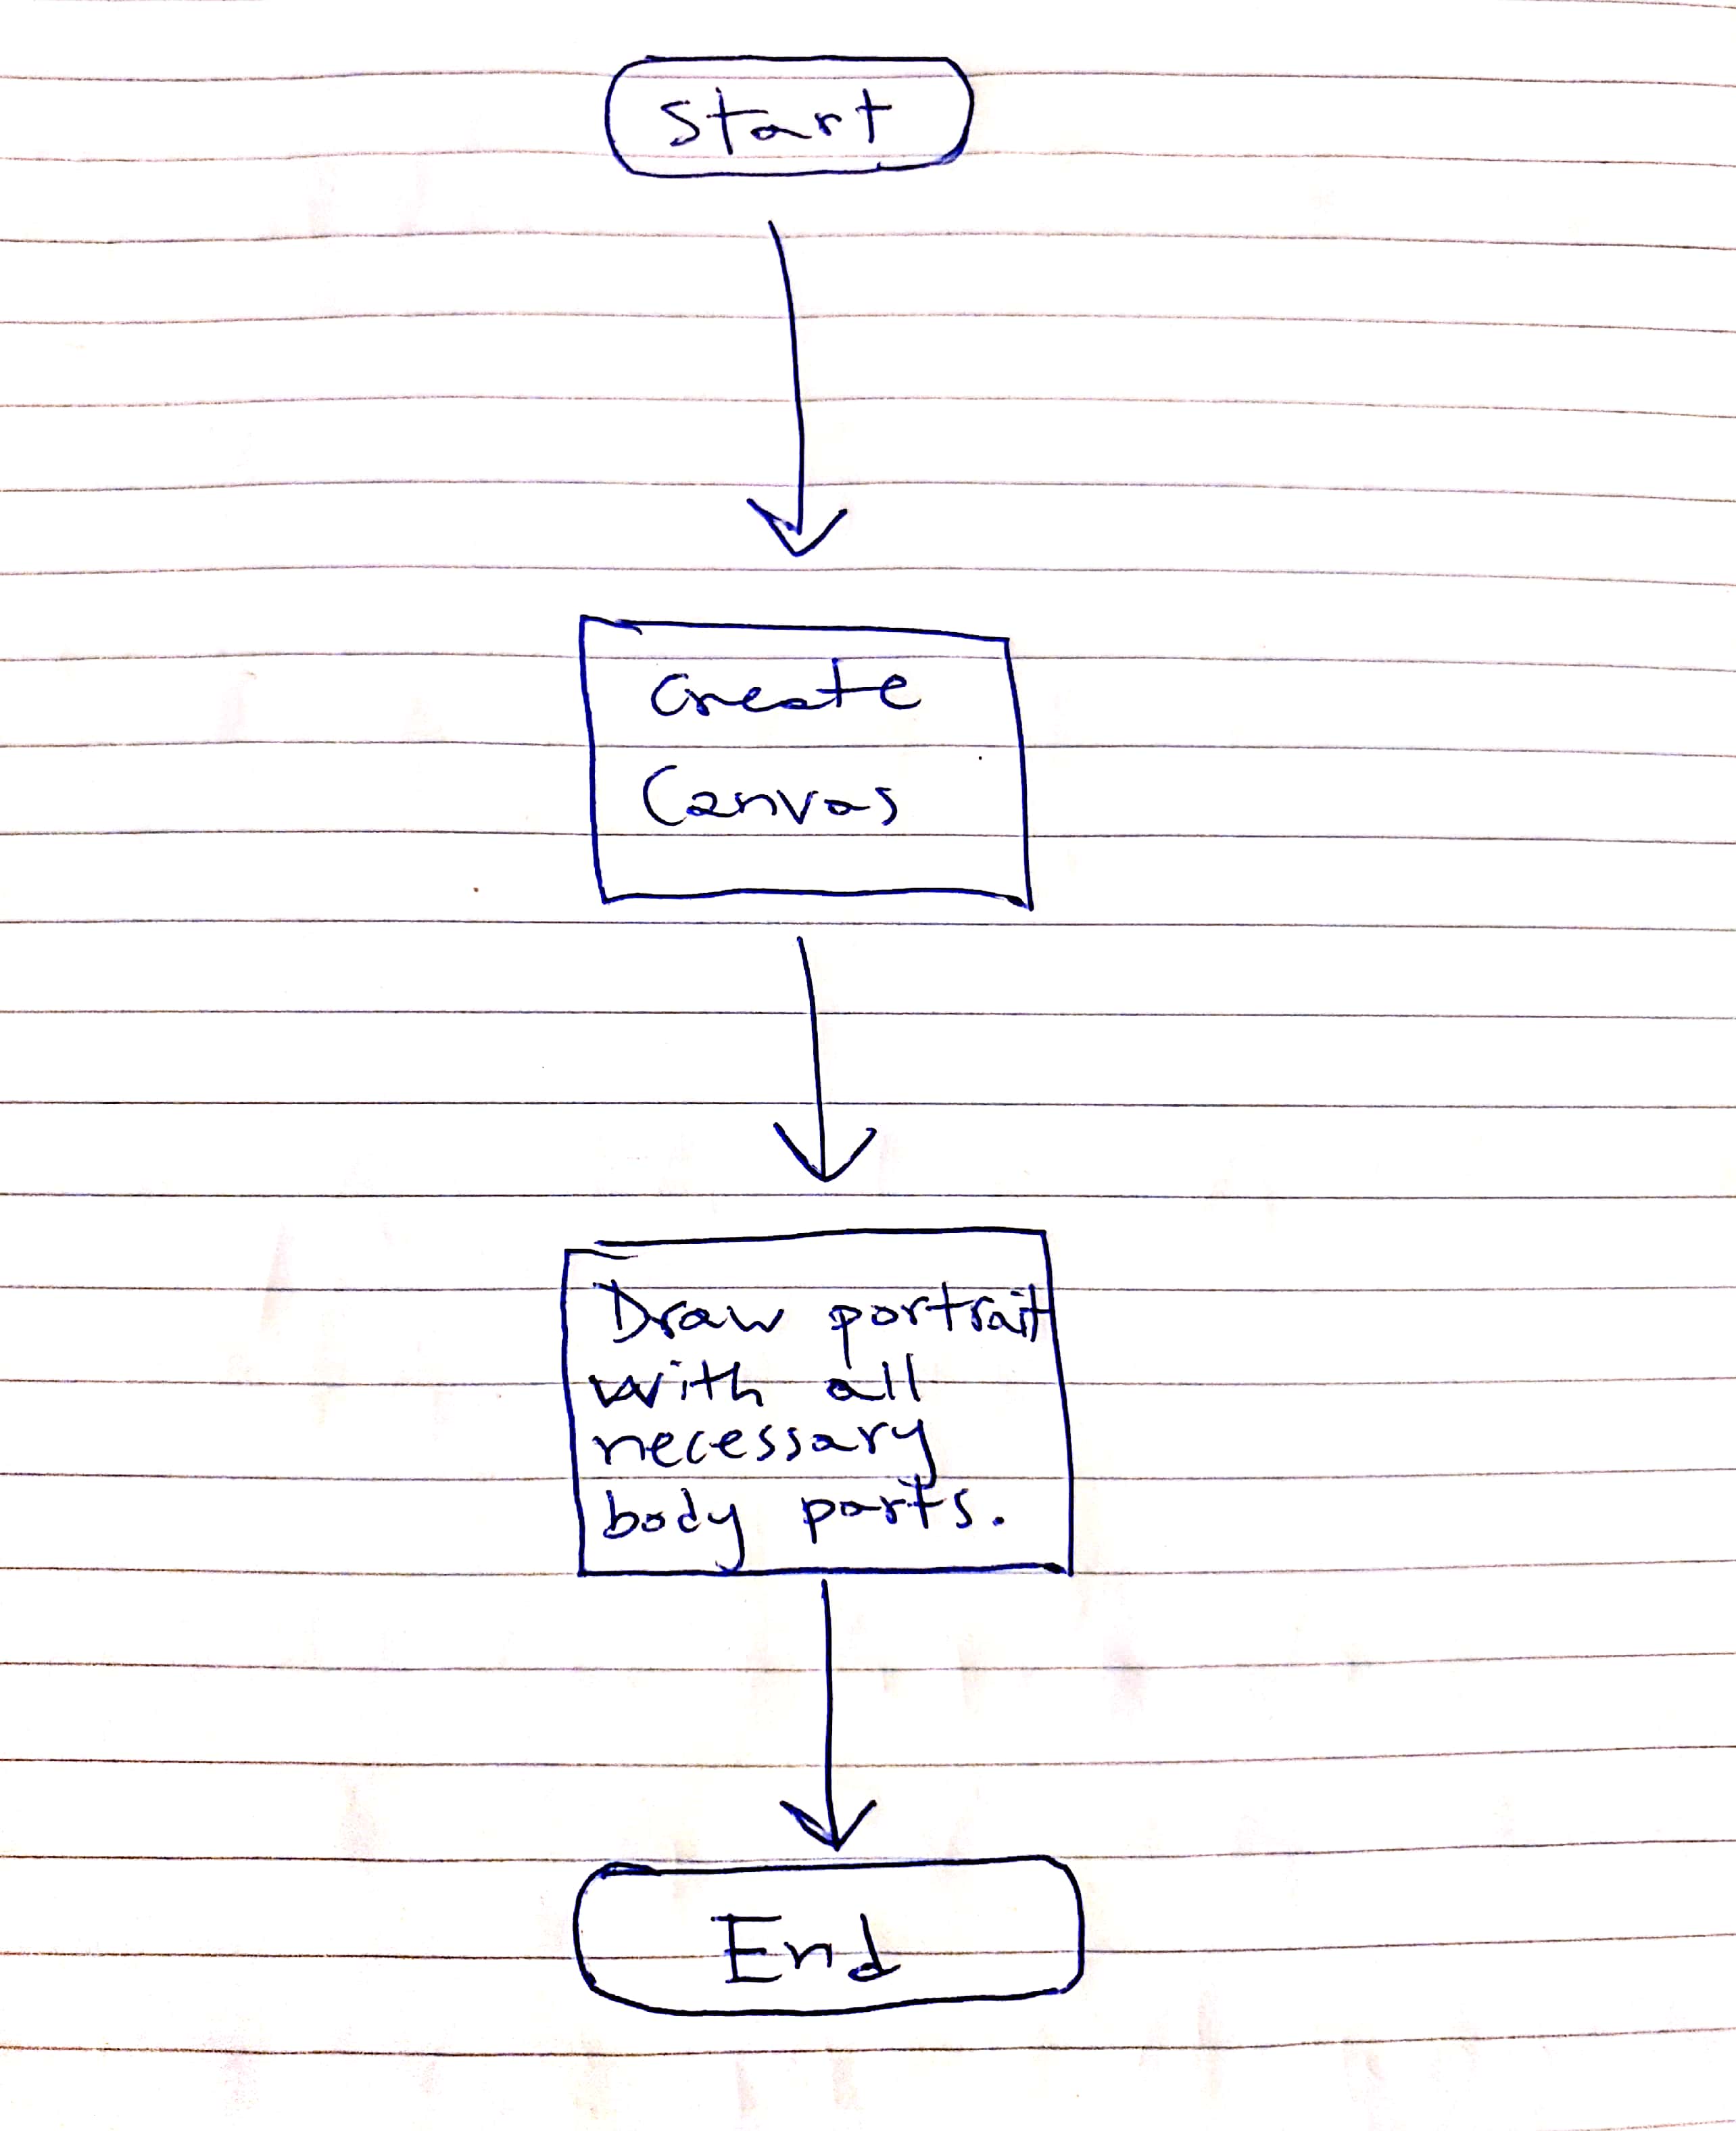 Start
Create
Canvas
Draw portrait
with all
necessary
body parts.
End